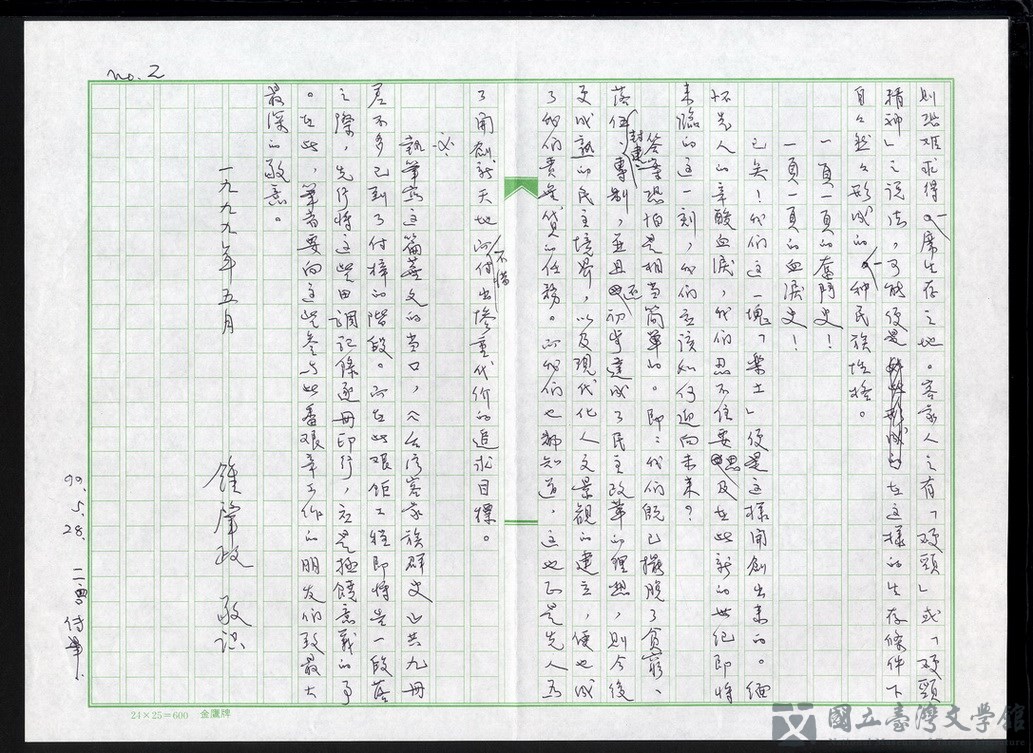 no. 2
則恐難求得一席生存之地。客家人之有「硬頸」或「硬頸
精神」之說法,可能便是在這樣的生存條件下
自自然然形成的一種民族性格。
一頁一頁的奮鬥史!
一頁一頁的血淚史!
已矣!我們這一塊「樂土」便是這樣開創出來的。緬
懷先人的辛酸血淚,我們忍不住要思及在此新的世紀即將
來臨的這一刻,我們應該如何迎向未來?
答案恐怕是相當簡單的。即:我們既已擺脫了貧窮、
落伍、封建、專制,並且還初步達成了民主改革的理想,則今後
更成熟的民主境界,以及現代化人文景觀的建立,便也成
了我們責無旁貸的任務。而我們也都知道,這也正是先人為
了開創新天地而不惜付出慘重代价的追求目標。
※
執筆寫這篇蕪文的當口,《台湾客家族群史》共九冊
差不多已到了付梓的階段。而在此艱鉅工程即將告一段落
之際,先行將這些田調記錄逐冊印行,應是極饒意義的事
。在此,筆者要向這些參與此番艱辛工作的朋友們致最大
最深的敬意。
一九九九年五月
鍾肇政 敬識
99. 5. 28.
24×25=600 金鷹牌
國立臺灣文學館